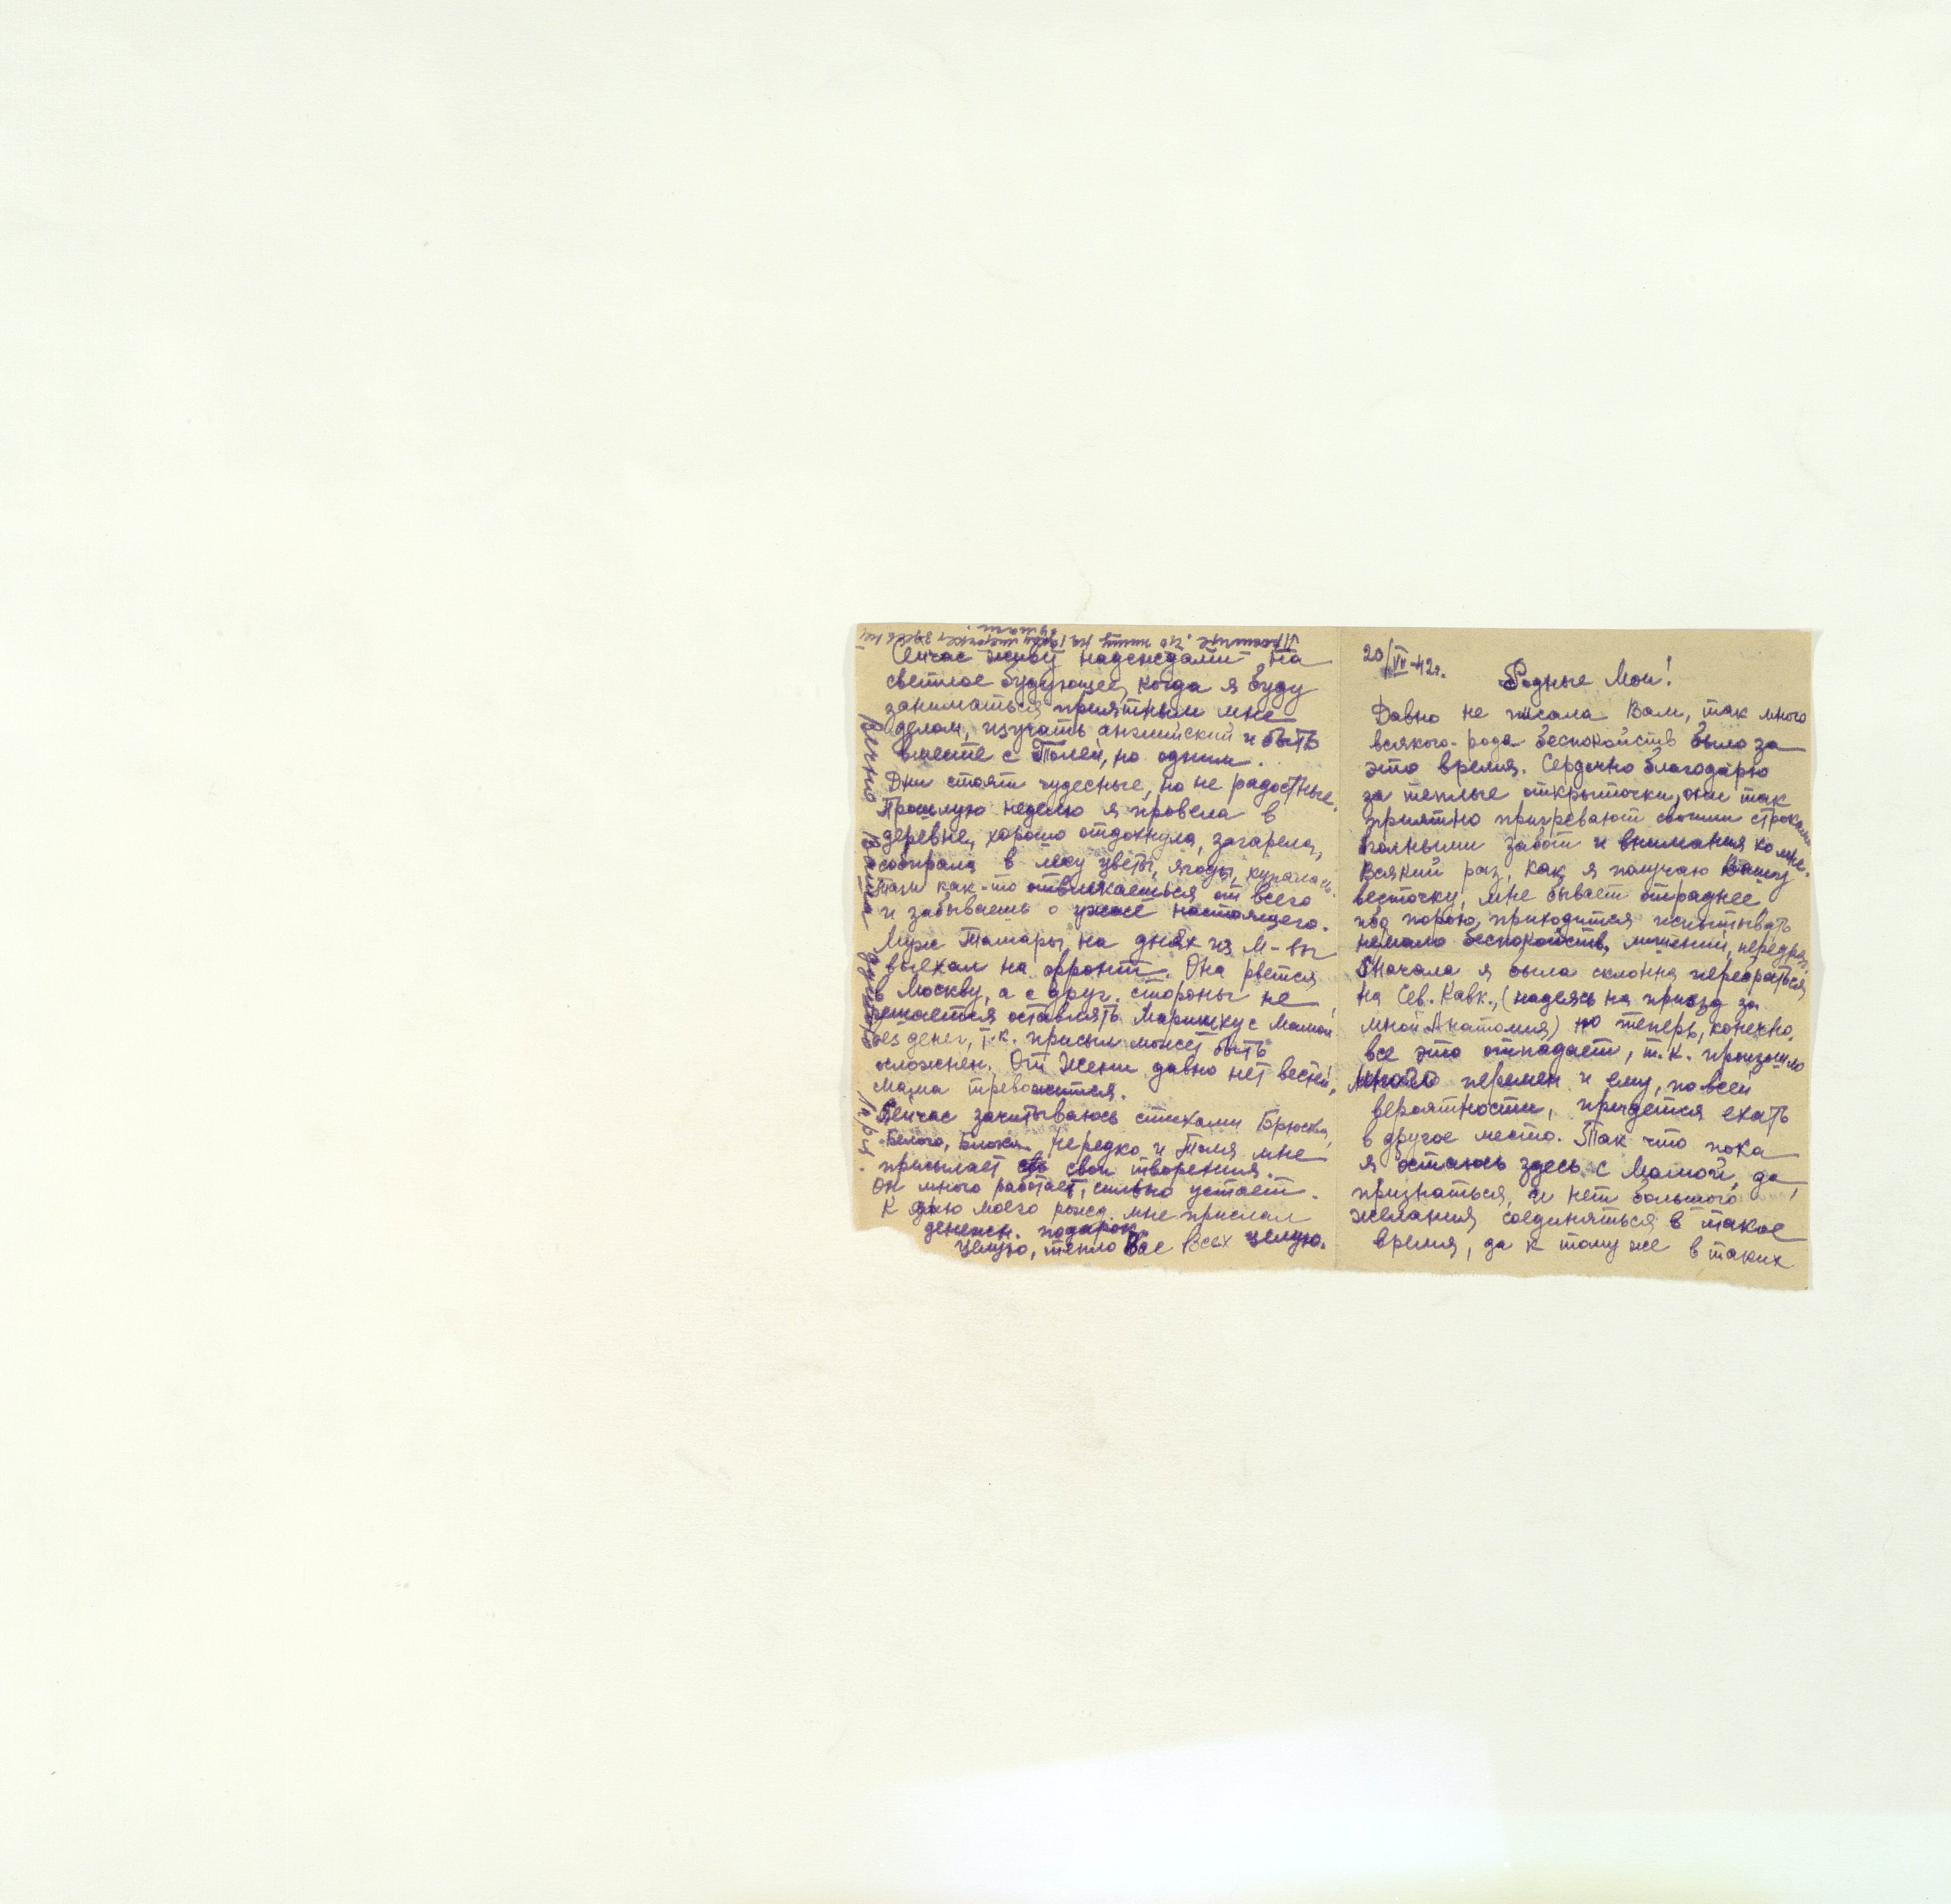 20/VII-42г.
Родные Мои!
Давно не писала Вам, так много
всякого рода беспокойств было за
это время. Сердечно благодарю
за теплые открыточки, они так
приятно пригревают своими строками
полными забот и внимания ко мне.
Всякий раз, как я получаю Вашу
весточку, мне бывает отраднее
ибо порою, приходится испытывать
немало беспокойств, лишений, передряг.
Сначала я была склонна перебраться
на Сев. Кавк., (надеясь на приезд за
мной Анатолия) но теперь, конечно,
все это отпадает, т.к. произошло
много перемен и ему, по всей
вероятности, придется ехать
в другое место. Так что пока
я остаюсь здесь с Мамой, да,
признаться, и нет большого
желания соединяться в такое
время, да к тому же в таких
Простите, что пишу на
бумаги.
Сейчас живу надеждами на
светлое будующее, когда я буду
заниматься приятным мне
делом, изучать английский и быть
вместе с Толей, но одним.
Дни стоят чудесные, но не радостные.
Прошлую неделю я провела в
деревне, хорошо отдохнула, загорела,
собирала в лесу цветы, ягоды, купалась.
Там как-то отвлекаешься от всего
и забываешь о ужасе настоящего.
Муж Тамары на днях из М-вы
выехал на фронт. Она рвется
в Москву, а с друг. стороны не
решается оставлять Маришку с Мамой
без денег, т.к. присыл может быть
осложнен. От Жени давно нет вестей,
мама тревожится.
Сейчас зачитываюсь стихами Брюсова,
Белого, Блока. Нередко и Толя мне
присылает свои творения.
Он много работает, сильно устает.
К дню моего рожд. мне прислал
денежн. подарок.
Целую, тепло Вас Всех целую.
Вечно Ваша душою